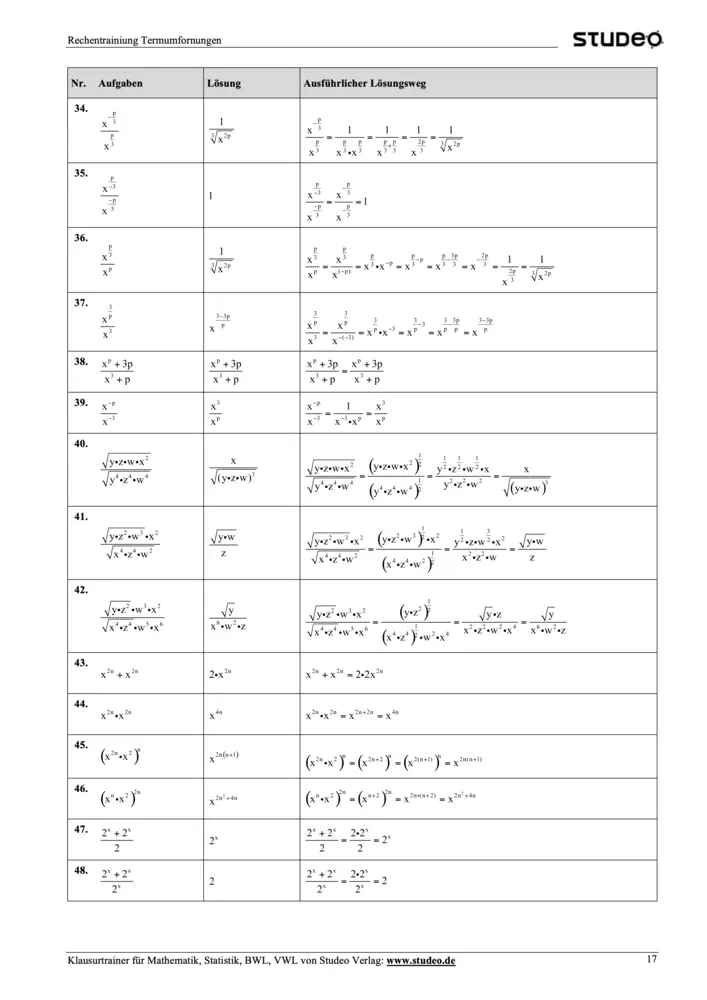 Rechentrainiung Termumfornungen
STUDEO
Nr. Aufgaben Lösung Ausführlicher Lösungsweg
34. x^(-p/3) / x^(p/3) | 1/∛(x^(2p)) | x^(-p/3) / x^(p/3) = 1/(x^(p/3)•x^(p/3)) = 1/x^(p/3+p/3) = 1/x^(2p/3) = 1/∛(x^(2p))
35. x^(p/-3) / x^(-p/3) | 1 | x^(p/-3) / x^(-p/3) = x^(-p/3) / x^(-p/3) = 1
36. x^(p/3) / x^p | 1/∛(x^(2p)) | x^(p/3) / x^p = x^(p/3) / x^(-(-p)) = x^(p/3)•x^(-p) = x^(p/3-p) = x^(p/3-3p/3) = x^(-2p/3) = 1/x^(2p/3) = 1/∛(x^(2p))
37. x^(3/p) / x^3 | x^((3-3p)/p) | x^(3/p) / x^3 = x^(3/p) / x^(-(-3)) = x^(3/p)•x^(-3) = x^(3/p-3) = x^(3/p-3p/p) = x^((3-3p)/p)
38. (x^p + 3p)/(x^3 + p) | (x^p + 3p)/(x^3 + p) | (x^p + 3p)/(x^3 + p) = (x^p + 3p)/(x^3 + p)
39. x^(-p) / x^(-3) | x^3 / x^p | x^(-p) / x^(-3) = 1/(x^(-3)•x^p) = x^3 / x^p
40. √(y•z•w•x^2) / √(y^4•z^4•w^4) | x / √((y•z•w)^3) | √(y•z•w•x^2) / √(y^4•z^4•w^4) = (y•z•w•x^2)^(1/2) / (y^4•z^4•w^4)^(1/2) = y^(1/2)•z^(1/2)•w^(1/2)•x / y^2•z^2•w^2 = x / √((y•z•w)^3)
41. √(y•z^2•w^3•x^2) / √(x^4•z^4•w^2) | √(y•w) / z | √(y•z^2•w^3•x^2) / √(x^4•z^4•w^2) = (y•z^2•w^3)^(1/2)•x^2 / (x^4•z^4•w^2)^(1/2) = y^(1/2)•z•w^(3/2)•x^2 / x^2•z^2•w = √(y•w) / z
42. √(y•z^2•w^3•x^2) / √(x^4•z^4•w^5•x^6) | √y / x^6•w^2•z | √(y•z^2•w^3•x^2) / √(x^4•z^4•w^5•x^6) = (y•z^2)^(1/2) / (x^4•z^4)^(1/2)•w^2•x^4 = √(y•z) / x^2•z^2•w^2•x^4 = √y / x^6•w^2•z
43. x^(2n) + x^(2n) | 2•x^(2n) | x^(2n) + x^(2n) = 2•2x^(2n)
44. x^(2n)•x^(2n) | x^(4n) | x^(2n)•x^(2n) = x^(2n+2n) = x^(4n)
45. (x^(2n)•x^2)^n | x^(2n(n+1)) | (x^(2n)•x^2)^n = (x^(2n+2))^n = (x^(2(n+1)))^n = x^(2n(n+1))
46. (x^n•x^2)^(2n) | x^(2n^2+4n) | (x^n•x^2)^(2n) = (x^(n+2))^(2n) = x^(2n•(n+2)) = x^(2n^2+4n)
47. (2^x + 2^x)/2 | 2^x | (2^x + 2^x)/2 = 2•2^x/2 = 2^x
48. (2^x + 2^x)/2^x | 2 | (2^x + 2^x)/2^x = 2•2^x/2^x = 2
Klausurtrainer für Mathematik, Statistik, BWL, VWL von Studeo Verlag: www.studeo.de 17